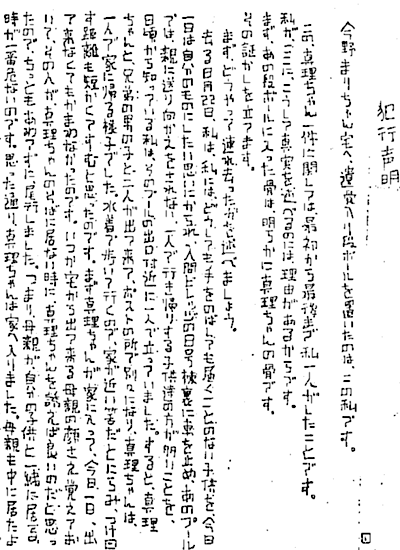 犯行声明
今野まりちゃん宅へ、遺骨入り段ボールを置いたのは、この私です。
この真理ちゃん一件に関しては、最初から最後まで私一人がしたことです。
私が、ここに、こうして真実を述べるのには理由があるからです。
まず、あの段ボールに入った骨は、明らかに真理ちゃんの骨です。
その証かしを立てます。
まず、どうやって連れ去ったかを述べましょう。
去る8月22日、私は、私にはどうしても手をのばしても届くことのない子供を、今日
一日は自分のものにしたい思いにかられ、入間ビレッジの日号棟裏に車を止め、あのプール
では、親に送り向かえをされない、一人で行き帰りする子供達の方が多いことを、
日頃から知っている私は、そのプールの出口付近に一人で立っていました。すると、真理
ちゃんと兄弟の男の子と二人が出て来て、ポストの所で別々になり、真理ちゃんは、
一人で家に帰る様子でした。水着で歩いて行くので、家が近い筈だとにらみ、つけ回
す距離も短かくてすむと思ったのです。まず真理ちゃんが家に入って、今日一日、出
て来なくてもかまわなかったのです。いつか宅から出て来る母親の顔さえ覚えてお
いて、その人が、真理ちゃんのそばに居ない時に、真理ちゃんを誘えば良いのだと思っ
たので、ちっともあわてずに尾行しました。つまり、母親が自分の子供と一緒に居る
時が一番危ないのです。思った通り、真理ちゃんは家へ入りました。母親も中に居たよ